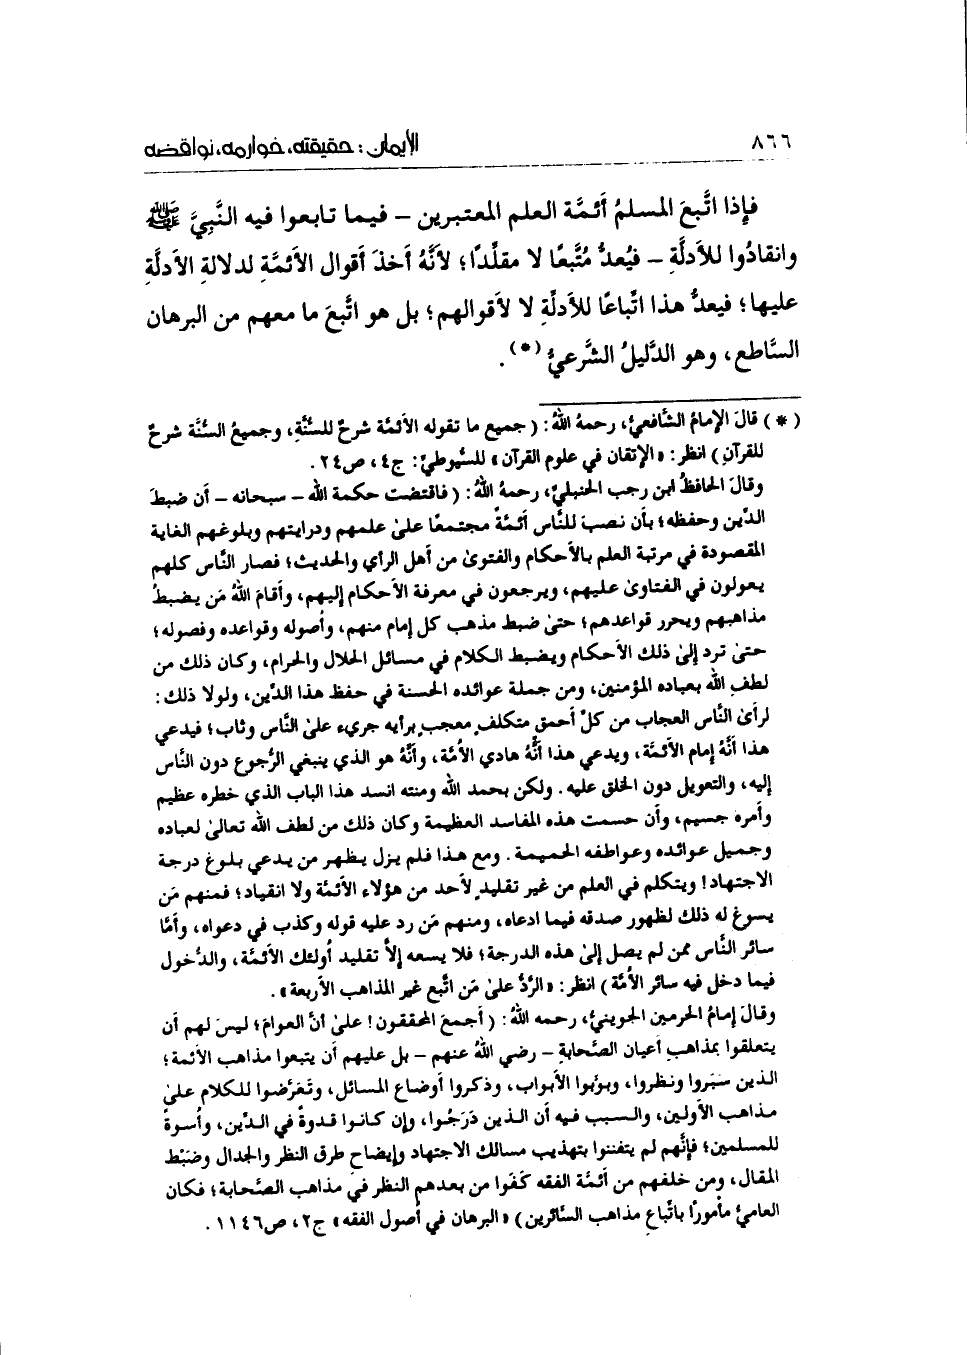 ٨٦٦
الأيمان: حقيقته، خوارمه، نواقضه
فإذا اتَّبعَ المسلمُ أئمَّة العلم المعتبرين – فيما تابعوا فيه النَّبيَّ ﷺ
وانقادُوا للأدلَّةِ – فيُعدُّ مُتَّبعًا لا مقلِّدًا؛ لأنَّهُ أخذَ أقوال الأئمَّةِ لدلالةِ الأدلَّةِ
عليها؛ فيعدُّ هذا اتِّباعًا للأدلَّةِ لا لأقوالهم؛ بل هو اتَّبعَ ما معهم من البرهان
السَّاطع، وهو الدَّليلُ الشَّرعيُّ (*).
(*) قالَ الإمامُ الشَّافعيُّ، رحمهُ اللهُ: (جميع ما تقوله الأئمَّة شرحٌ للسُّنَّةِ، وجميعُ السُّنَّة شرحٌ
للقرآنِ) انظر: «الإتقان في علوم القرآن» للسُّيوطيِّ: ج٤، ص٢٤.
وقالَ الحافظُ ابن رجب الحنبليِّ، رحمهُ اللهُ: (فاقتضت حكمة الله – سبحانه – أن ضبطَ
الدِّين وحفظه؛ بأن نصبَ للنَّاس أئمَّةً مجتمعًا علىٰ علمهم ودرايتهم وبلوغهم الغاية
المقصودة في مرتبة العلم بالأحكام والفتوىٰ من أهل الرأي والحديث؛ فصار النَّاس كلهم
يعولون في الفتاوىٰ عليهم، ويرجعون في معرفة الأحكام إليهم، وأقامَ اللهُ مَن يضبطُ
مذاهبهم ويحرر قواعدهم؛ حتىٰ ضبط مذهب كل إمام منهم، وأصوله وقواعده وفصوله؛
حتىٰ ترد إلىٰ ذلك الأحكام ويضبط الكلام في مسائل الحلال والحرام، وكان ذلك من
لطفِ الله بعباده المؤمنين، ومن جملة عوائده الحسنة في حفظ هذا الدِّين، ولولا ذلك:
لرأىٰ النَّاس العجاب من كلِّ أحمق متكلفٍ معجبٍ برأيه جريء علىٰ النَّاس وثاب؛ فيدعي
هذا أنَّهُ إمام الأئمَّة، ويدعي هذا أنَّهُ هادي الأُمَّة، وأنَّهُ هو الذي ينبغي الرُّجوع دون النَّاس
إليه، والتعويل دون الخلق عليه. ولكن بحمد الله ومنته انسد هذا الباب الذي خطره عظيم
وأمره جسيم، وأن حسمت هذه المفاسد العظيمة وكان ذلك من لطف الله تعالىٰ لعباده
وجميل عوائده وعواطفه الحميمة. ومع هذا فلم يزل يظهر من يدعي بلوغ درجة
الاجتهاد! ويتكلم في العلم من غير تقليدٍ لأحد من هؤلاء الأئمَّة ولا انقياد؛ فمنهم مَن
يسوغ له ذلك لظهور صدقه فيما ادعاه، ومنهم مَن رد عليه قوله وكذب في دعواه، وأمَّا
سائر النَّاس ممن لم يصل إلىٰ هذه الدرجة؛ فلا يسعه إلاَّ تقليد أولئك الأئمَّة، والدُّخول
فيما دخل فيه سائر الأُمَّة) انظر: «الرَّدُّ علىٰ مَن اتَّبع غير المذاهب الأربعة».
وقالَ إمامُ الحرمين الجوينيُّ، رحمه اللهُ: (أجمعَ المحققون! علىٰ أنَّ العوامَ؛ ليسَ لهم أن
يتعلقوا بمذاهبِ أعيان الصَّحابةِ – رضي اللهُ عنهم – بل عليهم أن يتبعوا مذاهبَ الأئمة؛
الذين سَبَروا ونظروا، وبوّبوا الأبواب، وذكروا أوضاع المسائل، وتَعَرَّضوا للكلام علىٰ
مذاهب الأولين، والسبب فيه أن الذين دَرَجُوا، وإن كانوا قدوةً في الدِّين، وأُسوةً
للمسلمين؛ فإنَّهم لم يتفننوا بتهذيب مسالك الاجتهاد وإيضاحِ طرق النظر والجدال وضَبْط
المقال، ومن خلفهم من أئمَّة الفقه كَفَوا من بعدهم النظر في مذاهب الصَّحابة؛ فكان
العاميُّ مأمورًا باتِّباعِ مذاهب السَّائرين) «البرهان في أصول الفقه» ج٢، ص١١٤٦.